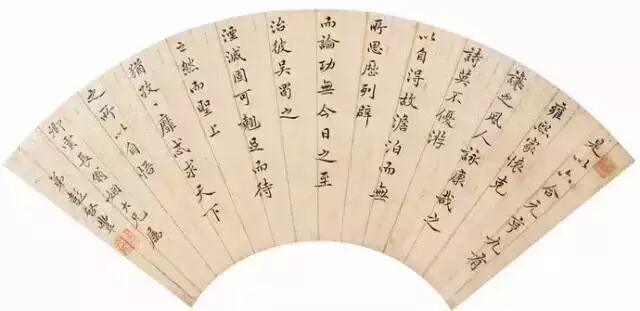 是以六合元亨九有
雍熙家懷克
讓之風人詠康哉之
詩莫不優游
以自得故澹泊而無
所思歷列辟
而論功無今日之至
治彼吳蜀之
湮滅固可翹足而待
之然而聖上
猶孜〻靡忒求天下
之所以自悟
雲長翁姻大兄屬
弟彭啓豐